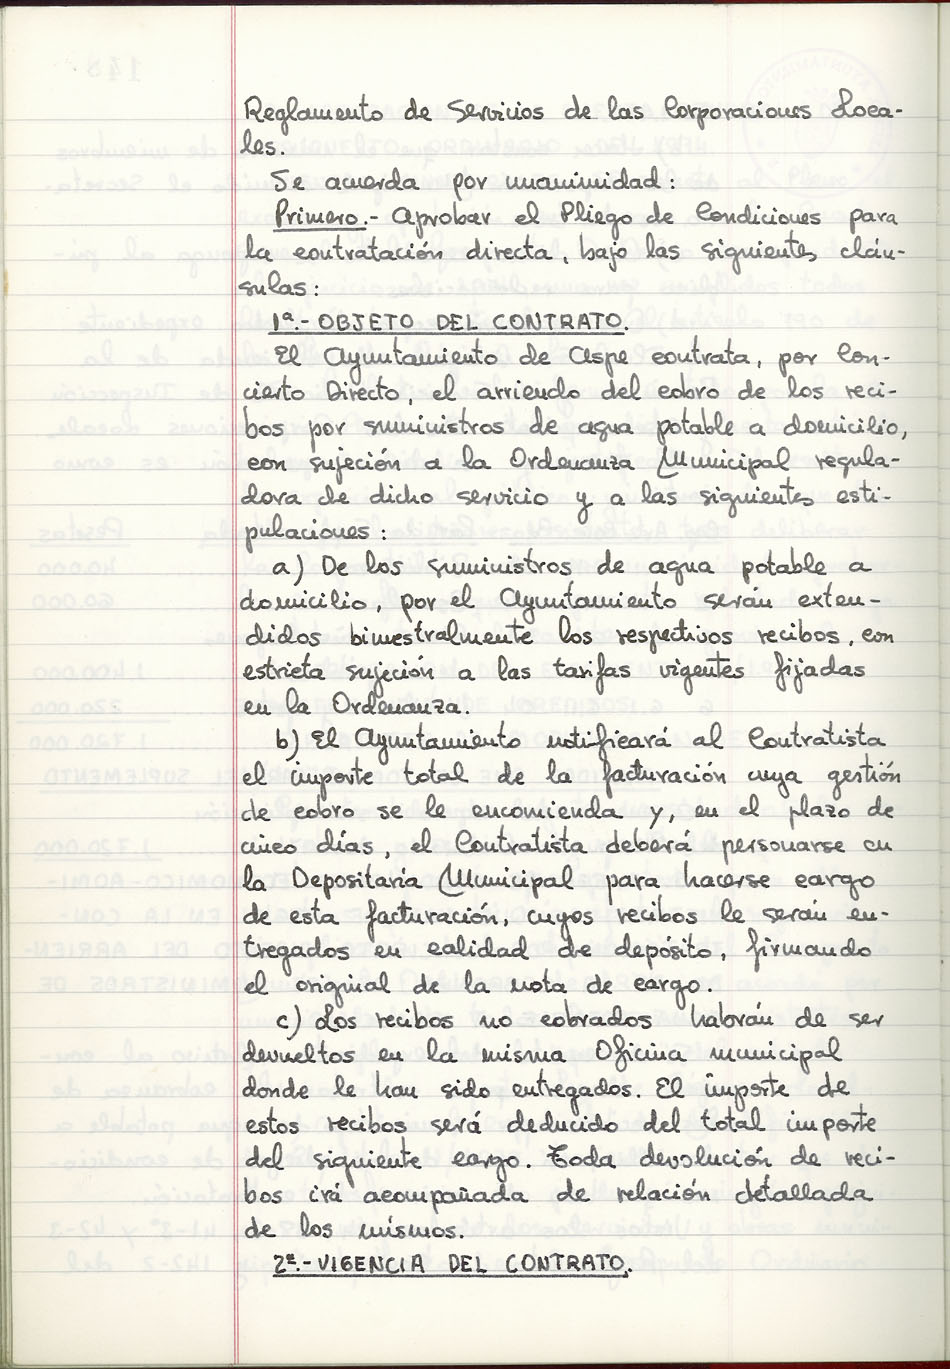 Reglamento de Servicios de las Corporaciones Loca-
les.
Se acuerda por unanimidad:
Primero.- Aprobar el Pliego de Condiciones para
la contratación directa, bajo las siguientes cláu-
sulas:
1ª.- OBJETO DEL CONTRATO.
El Ayuntamiento de Aspe contrata, por Con-
cierto Directo, el arriendo del cobro de los reci-
bos por suministros de agua potable a domicilio,
con sujeción a la Ordenanza Municipal regula-
dora de dicho servicio y a las siguientes esti-
pulaciones:
a) De los suministros de agua potable a
domicilio, por el Ayuntamiento serán exten-
didos bimestralmente los respectivos recibos, con
estricta sujeción a las tarifas vigentes fijadas
en la Ordenanza.
b) El Ayuntamiento notificará al Contratista
el importe total de la facturación cuya gestión
de cobro se le encomienda y, en el plazo de
cinco días, el Contratista deberá personarse en
la Depositaría Municipal para hacerse cargo
de esta facturación, cuyos recibos le serán en-
tregados en calidad de depósito, firmando
el original de la nota de cargo.
c) Los recibos no cobrados habrán de ser
devueltos en la misma Oficina municipal
donde le han sido entregados. El importe de
estos recibos será deducido del total importe
del siguiente cargo. Toda devolución de reci-
bos irá acompañada de relación detallada
de los mismos.
2ª.- VIGENCIA DEL CONTRATO.